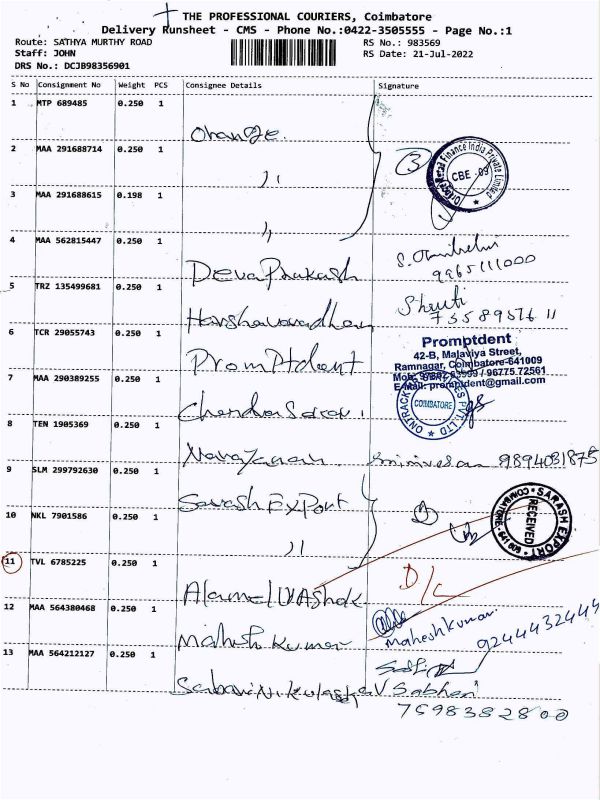 THE PROFESSIONAL COURIERS, Coimbatore
Delivery Runsheet - CMS - Phone No.:0422-3505555 - Page No.:1
Route: SATHYA MURTHY ROAD
RS No.: 983569
Staff: JOHN
RS Date: 21-Jul-2022
DRS No.: DCJB98356901
S No Consignment No Weight PCS Consignee Details Signature
1 MTP 689485 0.250 1 Orange
2 MAA 291688714 0.250 1 ,,
3
CBE -09
3 MAA 291688615 0.198 1 ,,
4 MAA 562815447 0.250 1 Deva Prakash
9965111000
5 TRZ 135499681 0.250 1 Harshavardhan
Shruti
6 TCR 29055743 0.250 1 Promptdent
Promptdent
42-B, Malaviya Street,
Ramnagar, Coimbatore-641009
/ 96775 72561
E-Mail: promptdent@gmail.com
7 MAA 290389255 0.250 1
COIMBATORE
8 TEN 1905369 0.250 1 Narayanan Srinivasan 9894031875
9 SLM 299792630 0.250 1 Sarash Export
SARASH EXPORT
RECEIVED
10 NKL 7901586 0.250 1 ,,
11 TVL 6785225 0.250 1 D/L
12 MAA 564380468 0.250 1 Mahesh Kumar
maheshkumar
9244432444
13 MAA 564212127 0.250 1
7598382800